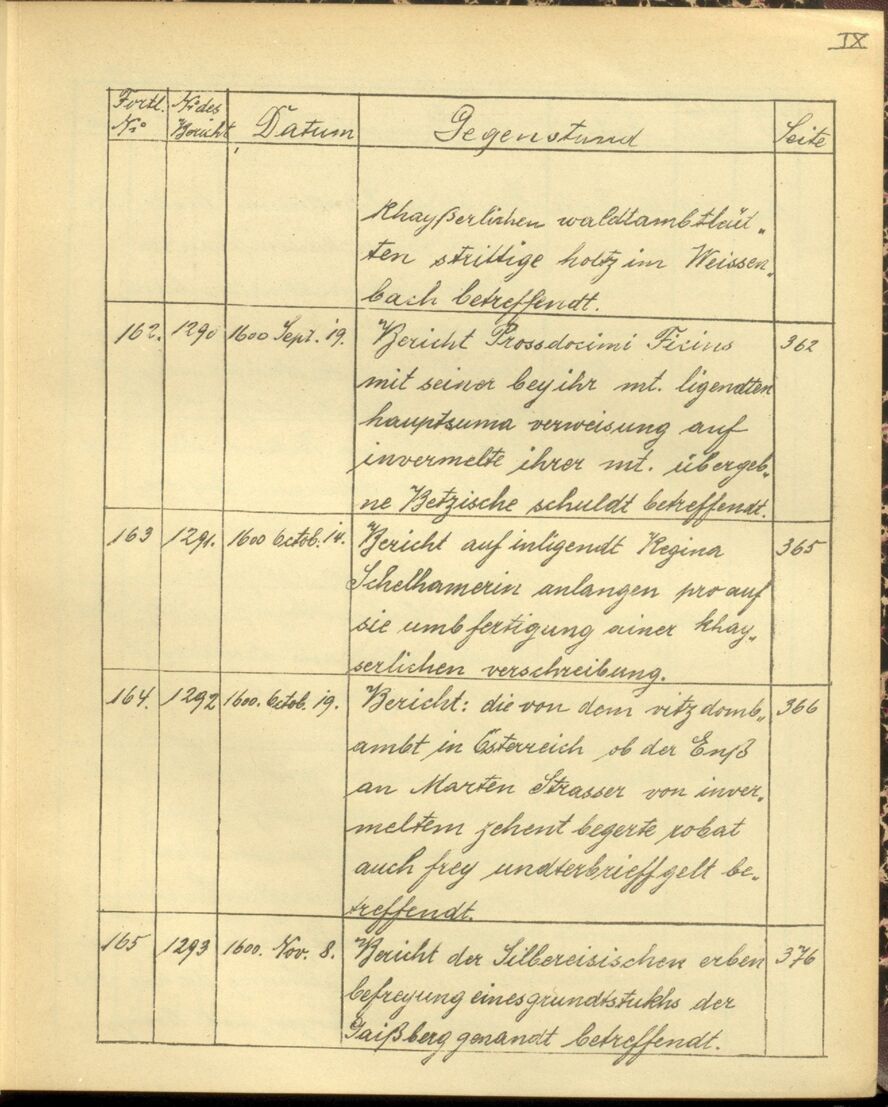 IX
Fortl. No des Datum Gegenstund Seite
No Bericht
Khayßerlichen waldtambtleüt„
ten strittige holtz im Weissen„
bach betreffendt.
162. 1290 1600 Sept. 19. Bericht Prossdocimi Ficins 362
mit seiner bey ihr mt. ligendten
hauptsuma verweisung auf
invermelte ihrer mt. übergeb„
ne Betzische schuldt betreffendt.
163 1291. 1600 Octob. 14. Bericht auf inligendt Regina 365
Schelhamerin anlangen pro auf
sie umb fertigung ainer khay„
serlichen verschreibung.
164. 1292 1600. Octob. 19. Bericht: die von dem vitzdomb„ 366
ambt in Österreich ob der Enß
an Marten Strasser von inver„
meltem zehent begerte robat
auch frey undterbrieffgelt be„
treffendt.
165 1293 1600. Nov. 8. Bericht der Silbereisischen erben 376
befreyung eines grundtstukhs der
Gaißberg genandt betreffendt.